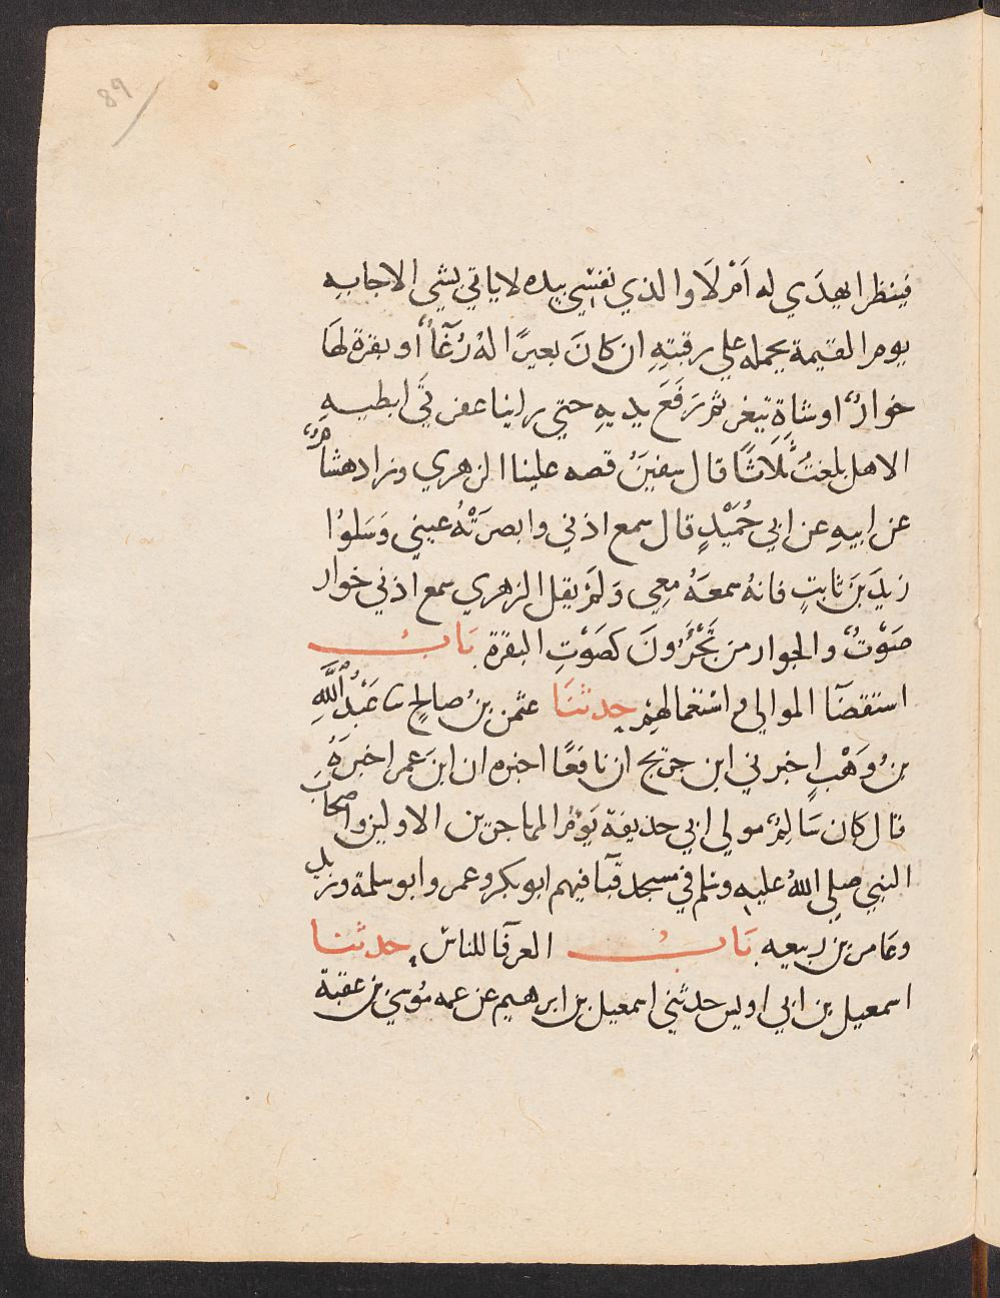 89
فينظر ايهدَي له اَمْ لَا والذي نفسْي بيده لا ياتي بشي الا جا بهِ
يوم القيمة يحمله علي رقبتهِ ان كانَ بعيرًا لهُ رُغَآءٌ او بقرة لهَا
خوارٌ، او شاةٍ تيعر ثم رَفَعَ يديهِ حتي راينا عفرتَي ابطيه
الا هل بلغتُ ثَلَاثًا قال سفينُ قصه علينا الزهري وزاد هشامٌ
عن ابيهِ عن ابي حُمَيْدٍ قال سمع اذني وابصرَتْهُ عيني وَسَلوُا
زيدَ بنَ ثابتٍ فانهُ سمعَهُ معِي وَلمَ يقل الزهري سمع اذني خوار
صَوْتٌ، والجوار من تَجْئَرُونَ كصَوْتِ البقرة بَابُ
استقضَآ الموالي واسْتعمالهِم حدثنَا عثمن بنُ صالحٍ نا عَبْدُ اللَّهِ
بنُ وَهْبٍ اخبرني ابن جريج ان نافعًا اخبره ان ابنَ عمر اخبرَهُ
قال كان سَالِمٌ مولي ابي حذيفة يَوُمُ المهاجرين الاولين واصحابَ
النبي صلي اللهُ عليه وسلم في مسجد قبَآ فيهم ابو بكر وعمر وابو سلمة وزيد
وعَامر بن ربيعه بَابُ العرفَآ للناس حدثنا
اسمعيل بن ابي اويس حدثني اسمعيل بن ابرهيم عن عمه مُوسيَ بن عقبة